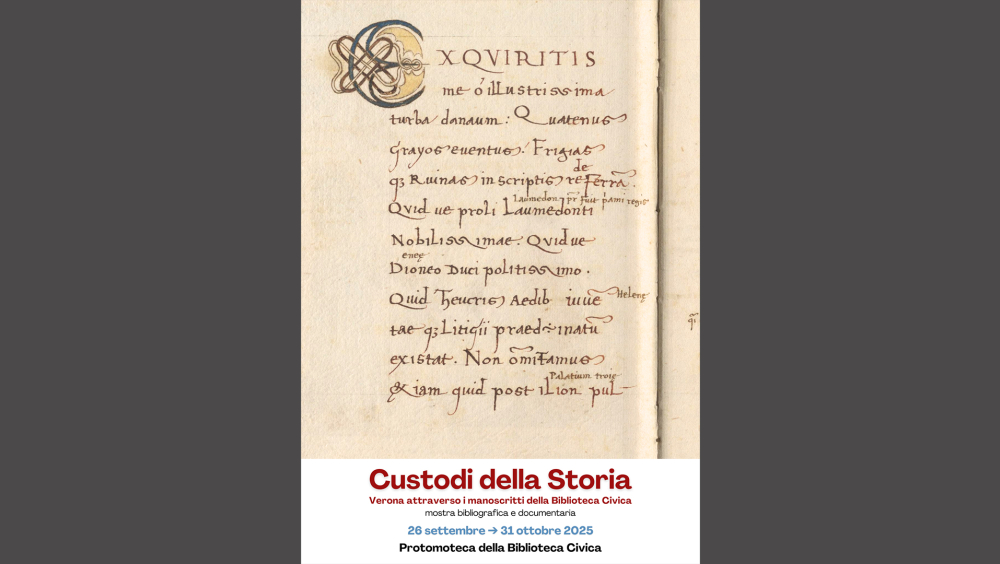 EXQVIRITIS
me ó illustrissima
turba danaum: Quatenus
Grayos euentus. Frigias
de
qꝫ Ruinas in scriptis re Ferrā.
Laumedon pr̄ fuit pami regis
Quid ue proli Laumedonti
Nobilissimae. Quidue
eneę
Dioneo Duci politissimo.
Helenę
Quid Theucris Aedib iuuē
tae qꝫ Litigii praed inatū
existat. Non om̄ittamus
Palatium troię
&iam quid post ilion pul
qi
Custodi della Storia
Verona attraverso i manoscritti della Biblioteca Civica
mostra bibliografica e documentaria
26 settembre → 31 ottobre 2025
Protomoteca della Biblioteca Civica